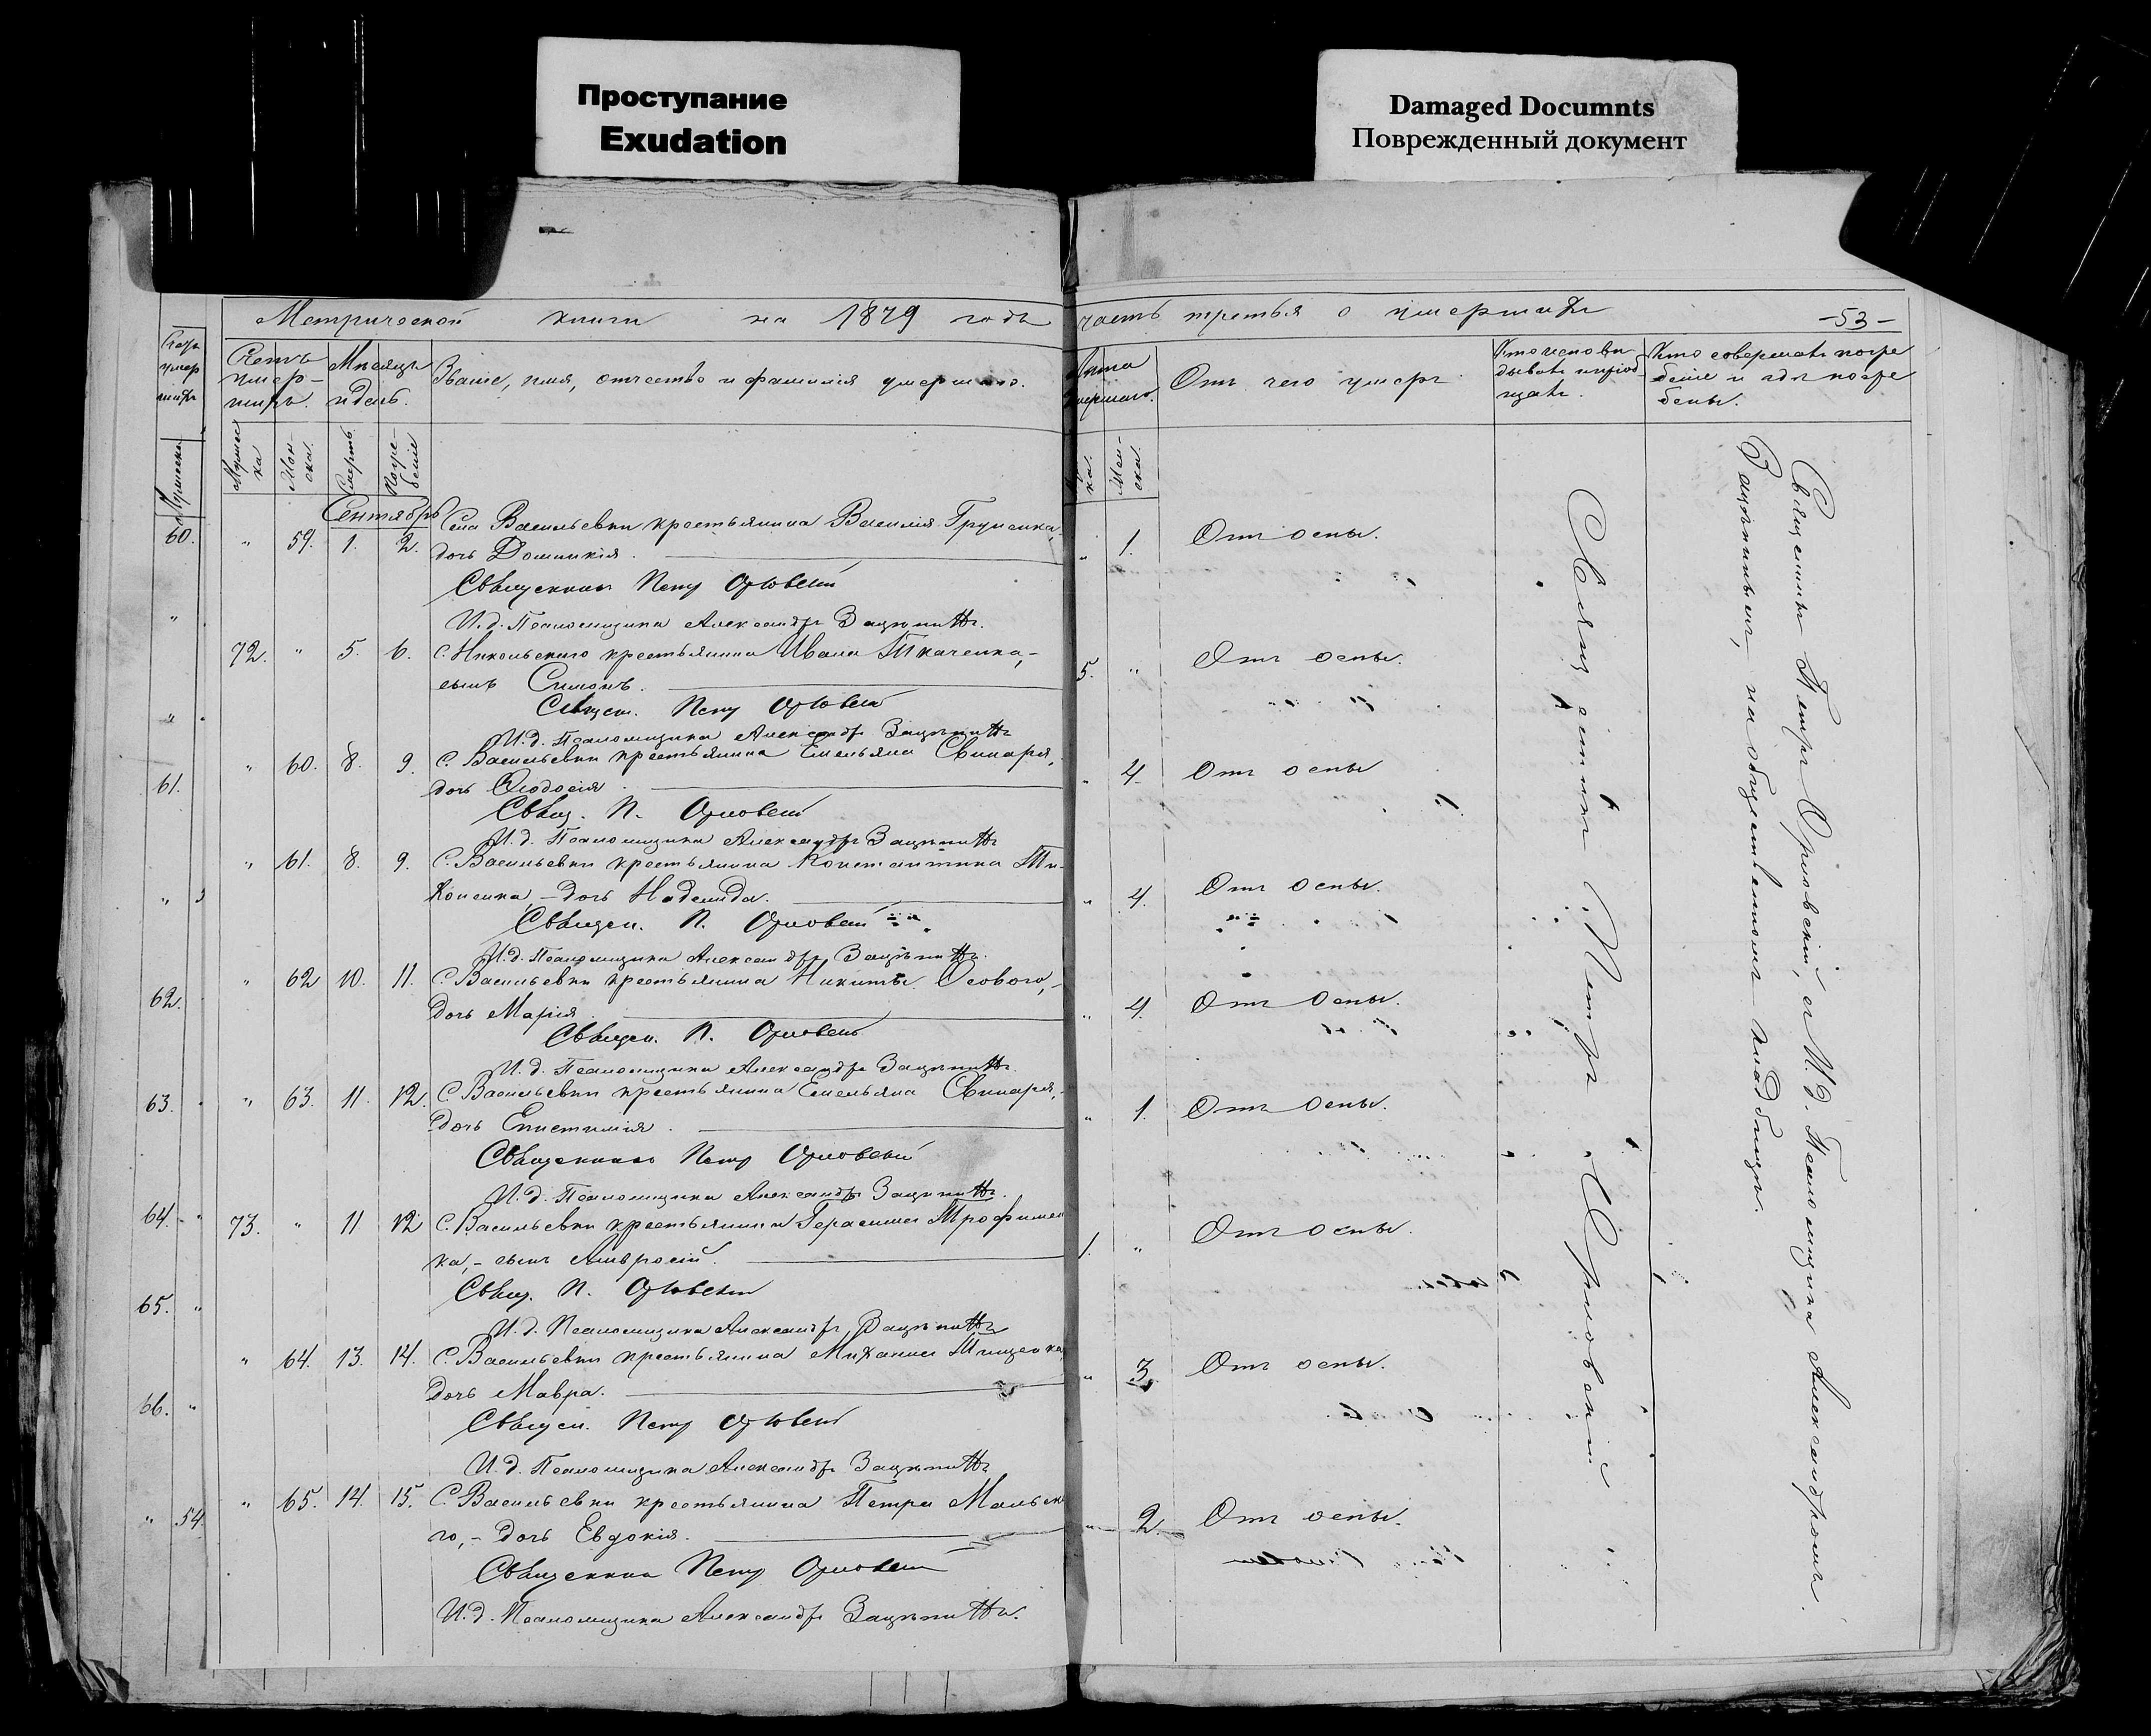 Проступание
Exudation
Damaged Documnts
Поврежденный документ
Метрической книги на 1879 годъ
часть третья о умершихъ
-53-
Счетъ умершихъ.
Мѣсяцъ и день.
Званіе, имя, отчество и фамилія умершаго.
Лѣта умершаго.
Отъ чего умеръ
Кто исповѣдывалъ и пріобщалъ.
Кто совершалъ погребеніе и гдѣ погребены.
Мужеска
Женска.
Смерть.
Погребеніе
Сентябрь
60.
" 59. 1. 2. Села Васильевки крестьянина Василія Груненка,
дочь Домникія.
" 1. Отъ оспы.
Священникъ Петръ Орловскій
И. д. Псаломщика Александръ
72. " 5. 6. С. Никольскаго крестьянина Ивана Ткаченка,-
сынъ Симонъ.
5. " Отъ оспы.
Священ. Петръ Орловскій
И. д. Псаломщика Александръ
61.
" 60. 8. 9. С. Васильевки крестьянина Емельяна Свинаря,
дочь Ѳеодосія
" 4. Отъ оспы
Свящ. П. Орловскій
И. д. Псаломщика Александръ
" 61. 8. 9. С. Васильевки крестьянина Константина Ти-
хоненка,- дочь Надежда.
" 4. Отъ оспы.
Священ. П. Орловскій
И. д. Псаломщика Александръ
62.
" 62 10. 11. С. Васильевки крестьянина Никиты Осового,-
дочь Марія
" 4. Отъ оспы.
Священ. П. Орловскій
И. д. Псаломщика Александръ
63.
" 63. 11. 12. С. Васильевки крестьянина Емельяна Свинаря,-
дочь Епистимія
" 1. Отъ оспы.
Священникъ Петръ Орловскій
И. д. Псаломщика Александръ
64.
73. " 11 12 С. Васильевки крестьянина Герасима Трофимен
ка,- сынъ Амвросій.
1. " Отъ оспы.
Свящ. П. Орловскій
65.
И. д. Псаломщика Александръ
" 64. 13. 14. С. Васильевки крестьянина Михаила Тищенка,
дочь Мавра.
" 3. Отъ оспы.
66.
Священ. Петръ Орловскій
И. д. Псаломщика Александръ
" 54.
" 65. 14. 15. С. Васильевки крестьянина Петра Мальск
го,- дочь Евдокія.
" 2. Отъ оспы.
Священникъ Петръ Орловскій
И. д. Псаломщика Александръ
Священникъ Петръ Орловскій
Священникъ Петръ Орловскій, съ И. д. Псаломщика Александромъ
на общественномъ кладбищѣ.